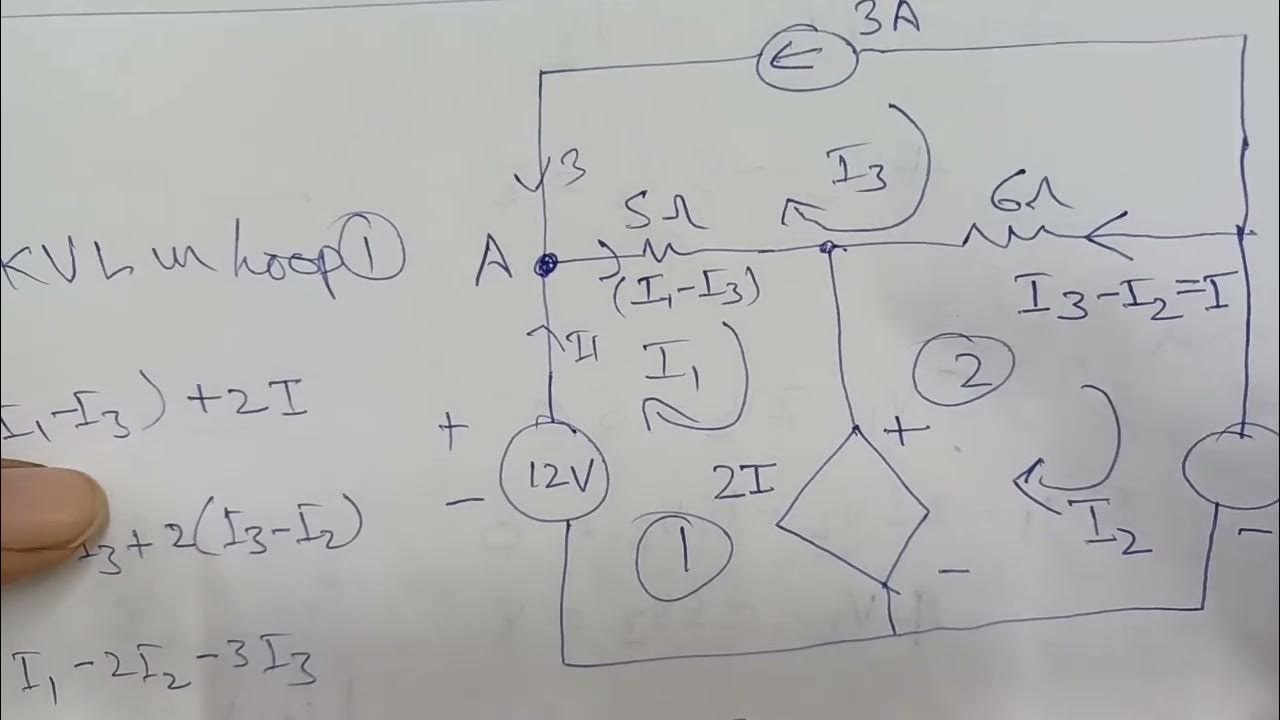 3A
I3
3
5Ω
6Ω
KVL in Loop ①
A
(I1-I3)
I3-I2=I
I1
I1
②
I1-I3) +2I
+
-
12V
2I
+
I2
①
I3+2(I3-I2)
-
-
I1-2I2-3I3